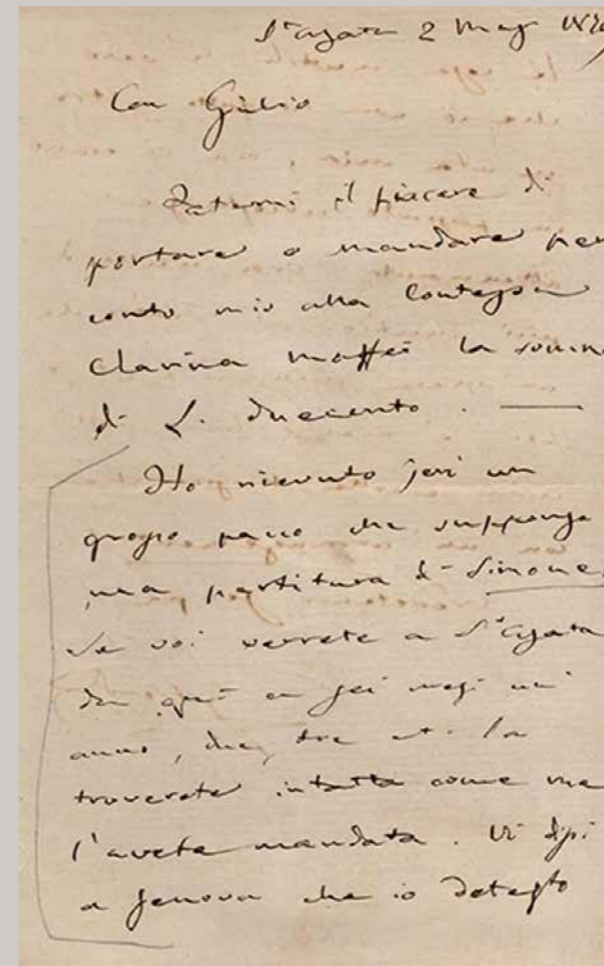 St Agata 2 Mag 1879
Car Giulio
Fatemi il piacere di
portare o mandare per
conto mio alla Contessa
Clarina Maffei la somma
di L. duecento. —
Ho ricevuto jeri un
grosso pacco che suppongo
una partitura di Simone!
Se voi verrete a St Agata
da quì a sei mesi un
anno, due, tre etc. la
troverete intatta come me
l'avete mandata. Vi dissi
a Genova che io detesto